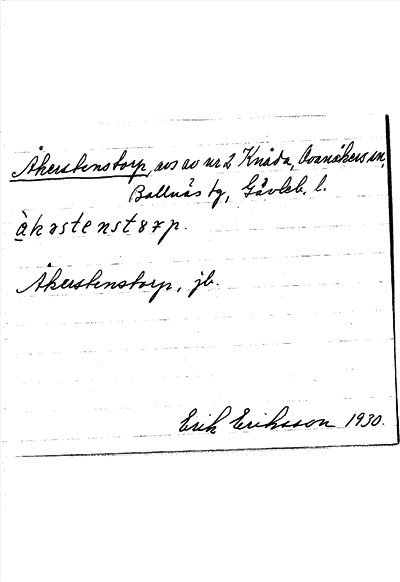 Åkerstenstorp, avs av nr 2 Knåda, Ovanåkers sn,
Bollnäs tg, Gävleb. l.
àkərstenstərp.
Åkerstenstorp, jb.
Erik Eriksson 1930.